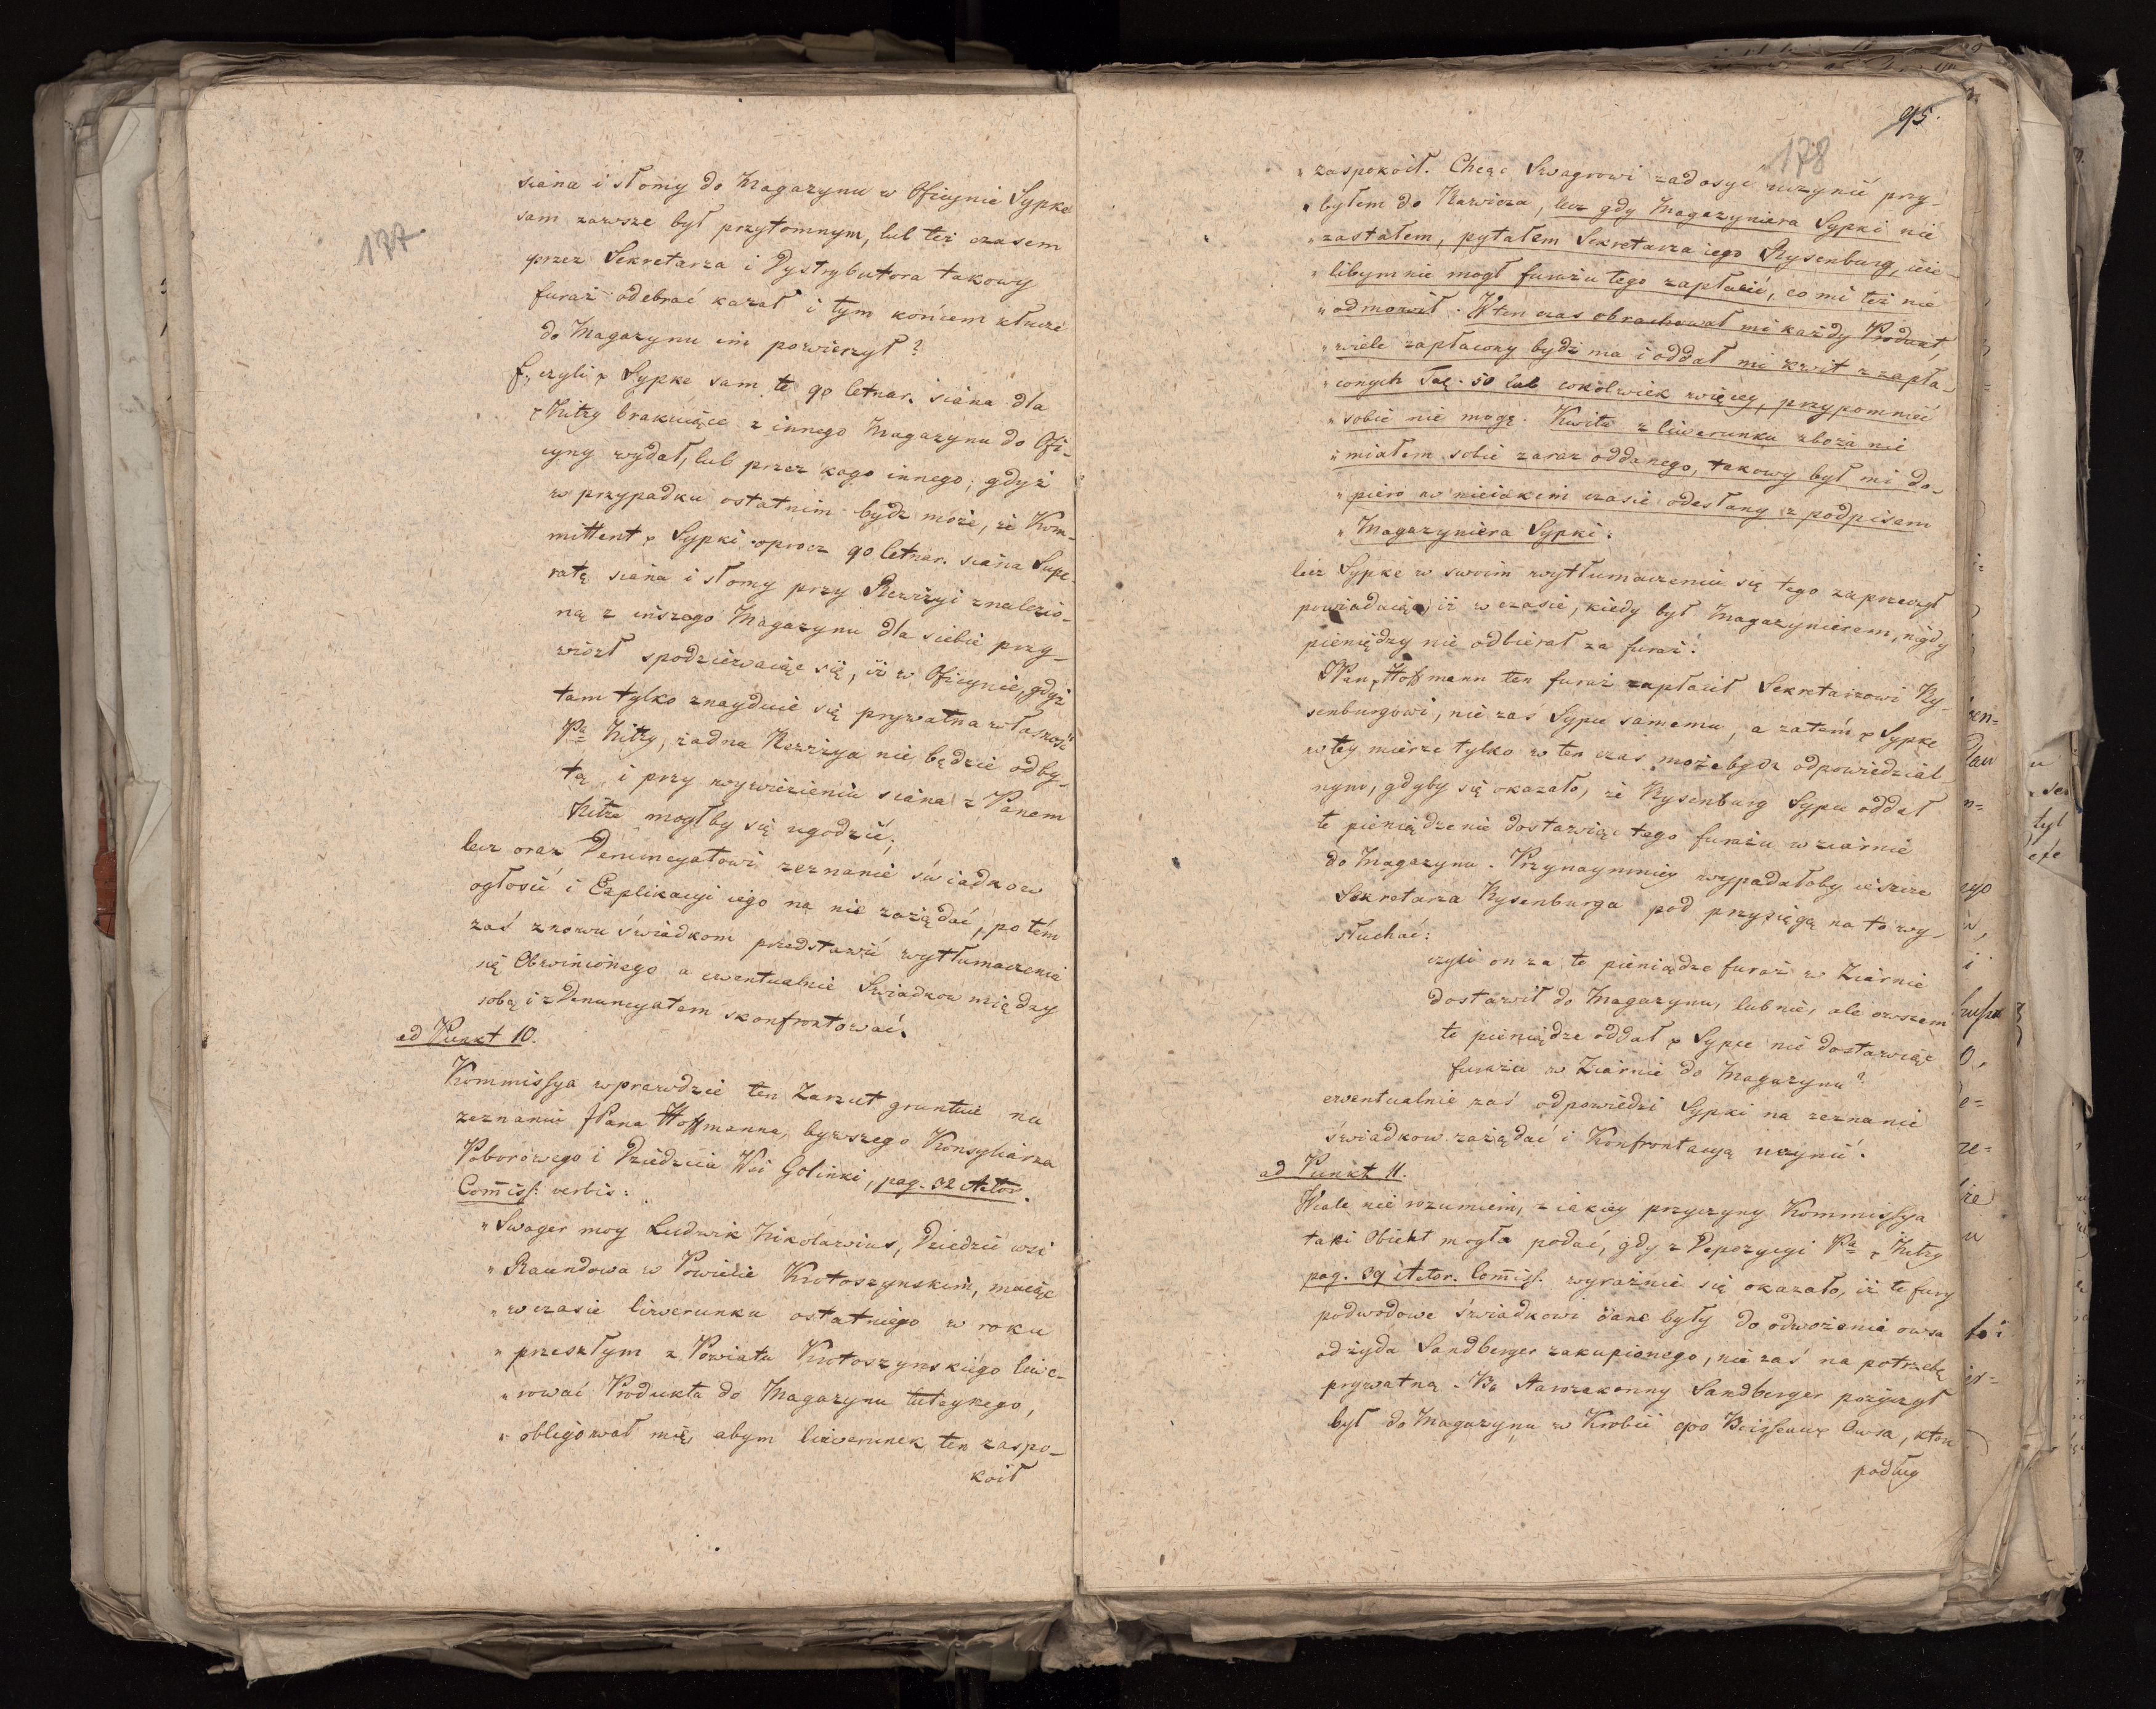 177
siana i słomy do Magazynu w Oficynie Sypke
sam zawsze był przytomnym, lub też czasem
przez Sekretarza i Dystrybutora takowy
furaż odebrać kazał i tym końcem klucze
do Magazynu im powierzył?
f., czyli x Sypke sam te 90 letnar. siana dla
x Kitzy brakuiące z innego Magazynu do Ofi-
cyny wydał, lub przez kogo innego; gdyż
w przypadku ostatnim bydź może, że Kom-
mittent x Sypki oprocz 90 letnar. siana Supe-
ratę siana i słomy przy Rewizyi znalezio-
ną z inszego Magazynu dla siebie przy-
wiozł spodziewaiąc się, iż w Oficynie, gdyż
tam tylko znayduie się prywatna własność
Pa Kitzy, żadna Rewizya nie będzie odby-
tą i przy wywiezieniu siana z Panem
Kitze mogłby się ugodzić;
lecz oraz Denuncyatowi zeznanie świadkow
ogłosić i Explikacyi iego na nie zażądać, po tém
zaś znowu świadkom przedstawić wytłumaczenie
się Obwinionego a ewentualnie Swiadkow między
sobą i z Denuncyatem skonfrontować.
ad Punkt 10.
Kommissya wprawdzie ten Zarzut gruntuie na
zeznaniu JPana Hoffmanna, bywszego Konsyliarza
Poborowego i Dziedzica Wsi Golinki, pag. 32 Actor.
Comiss. verbis:
" Swager moy Ludwik Nikolawius, Dziedzic wsi
" Raundowa w Powiecie Krotoszynskim, maiąc
" w czasie liwerunku ostatniego w roku
" przeszłym z Powiatu Krotoszynskiego liwe-
" rować Produkta do Magazynu tuteyszego,
" obligował mię abym liwerunek ten zaspo-
koił
95.
178
" zaspokoił. Chcąc Swagrowi zadosyć uczynić przy-
" byłem do Rawicza, lecz gdy Magazyniera Sypki nie
" zastałem, pytałem Sekretarza iego Rysenburg, ieże-
" libym nie mogł furażu tego zapłacić, co mi też nie
" odmowił. W ten czas obrachował mi każdy Produkt,
" wiele zapłacony bydź ma i oddał mi kwit z zapła-
" conych Tal. 50 lub cokolwiek więcey, przypomnieć
" sobie nie mogę. Kwitu z liwerunku zboża nie
" miałem sobie zaraz oddanego, takowy był mi do-
" piero w nieiakim czasie odesłany z podpisem
" Magazyniera Sypki:
lecz Sypke w swoim wytłumaczeniu się tego zaprzeczył
powiadaiąc, iż w czasie, kiedy był Magazynierem, nigdy
pieniędzy nie odbierał za furaż.
Pan x Hoffmann ten furaż zapłacił Sekretarzowi Ry-
senburgowi, nie zaś Sypce samemu, a zatém x Sypke
w tey mierze tylko w ten czas może bydz odpowiedzial-
nym, gdyby się okazało, że Rysenburg Sypce oddał
te pieniądze nie dostawiąc tego furażu w ziarnie
do Magazynu. Przynaymniey wypadałoby ieszcze
Sekretarza Rysenburga pod przysięgą na to wy-
słuchać:
czyli on za te pieniądze furaż w Ziarnie
dostawił do Magazynu, lub nie, ale owszem
te pieniądze oddał x Sypce nie dostawiąc
furażu w Ziarnie do Magazynu?
ewentualnie zaś odpowiedzi Sypki na zeznanie
świadkow zażądać i Konfrontacyą uczynić.
ad Punkt 11.
Wcale nie rozumiem, z iakiey przyczyny Kommissya
taki Obiekt mogła podać, gdy z Depozycyi Pa x Kitzy
pag. 39 Actor. Comiss. wyraźnie się okazało, iż te fury
podwodowe świadkowi dane były do odwożenia owsa
od żyda Sandberger zakupionego, nie zaś na potrzebę
prywatną. Bo Starozakonny Sandberger pożyczył
był do Magazynu w Krobii 900 Boisseaux Owsa, które
podług